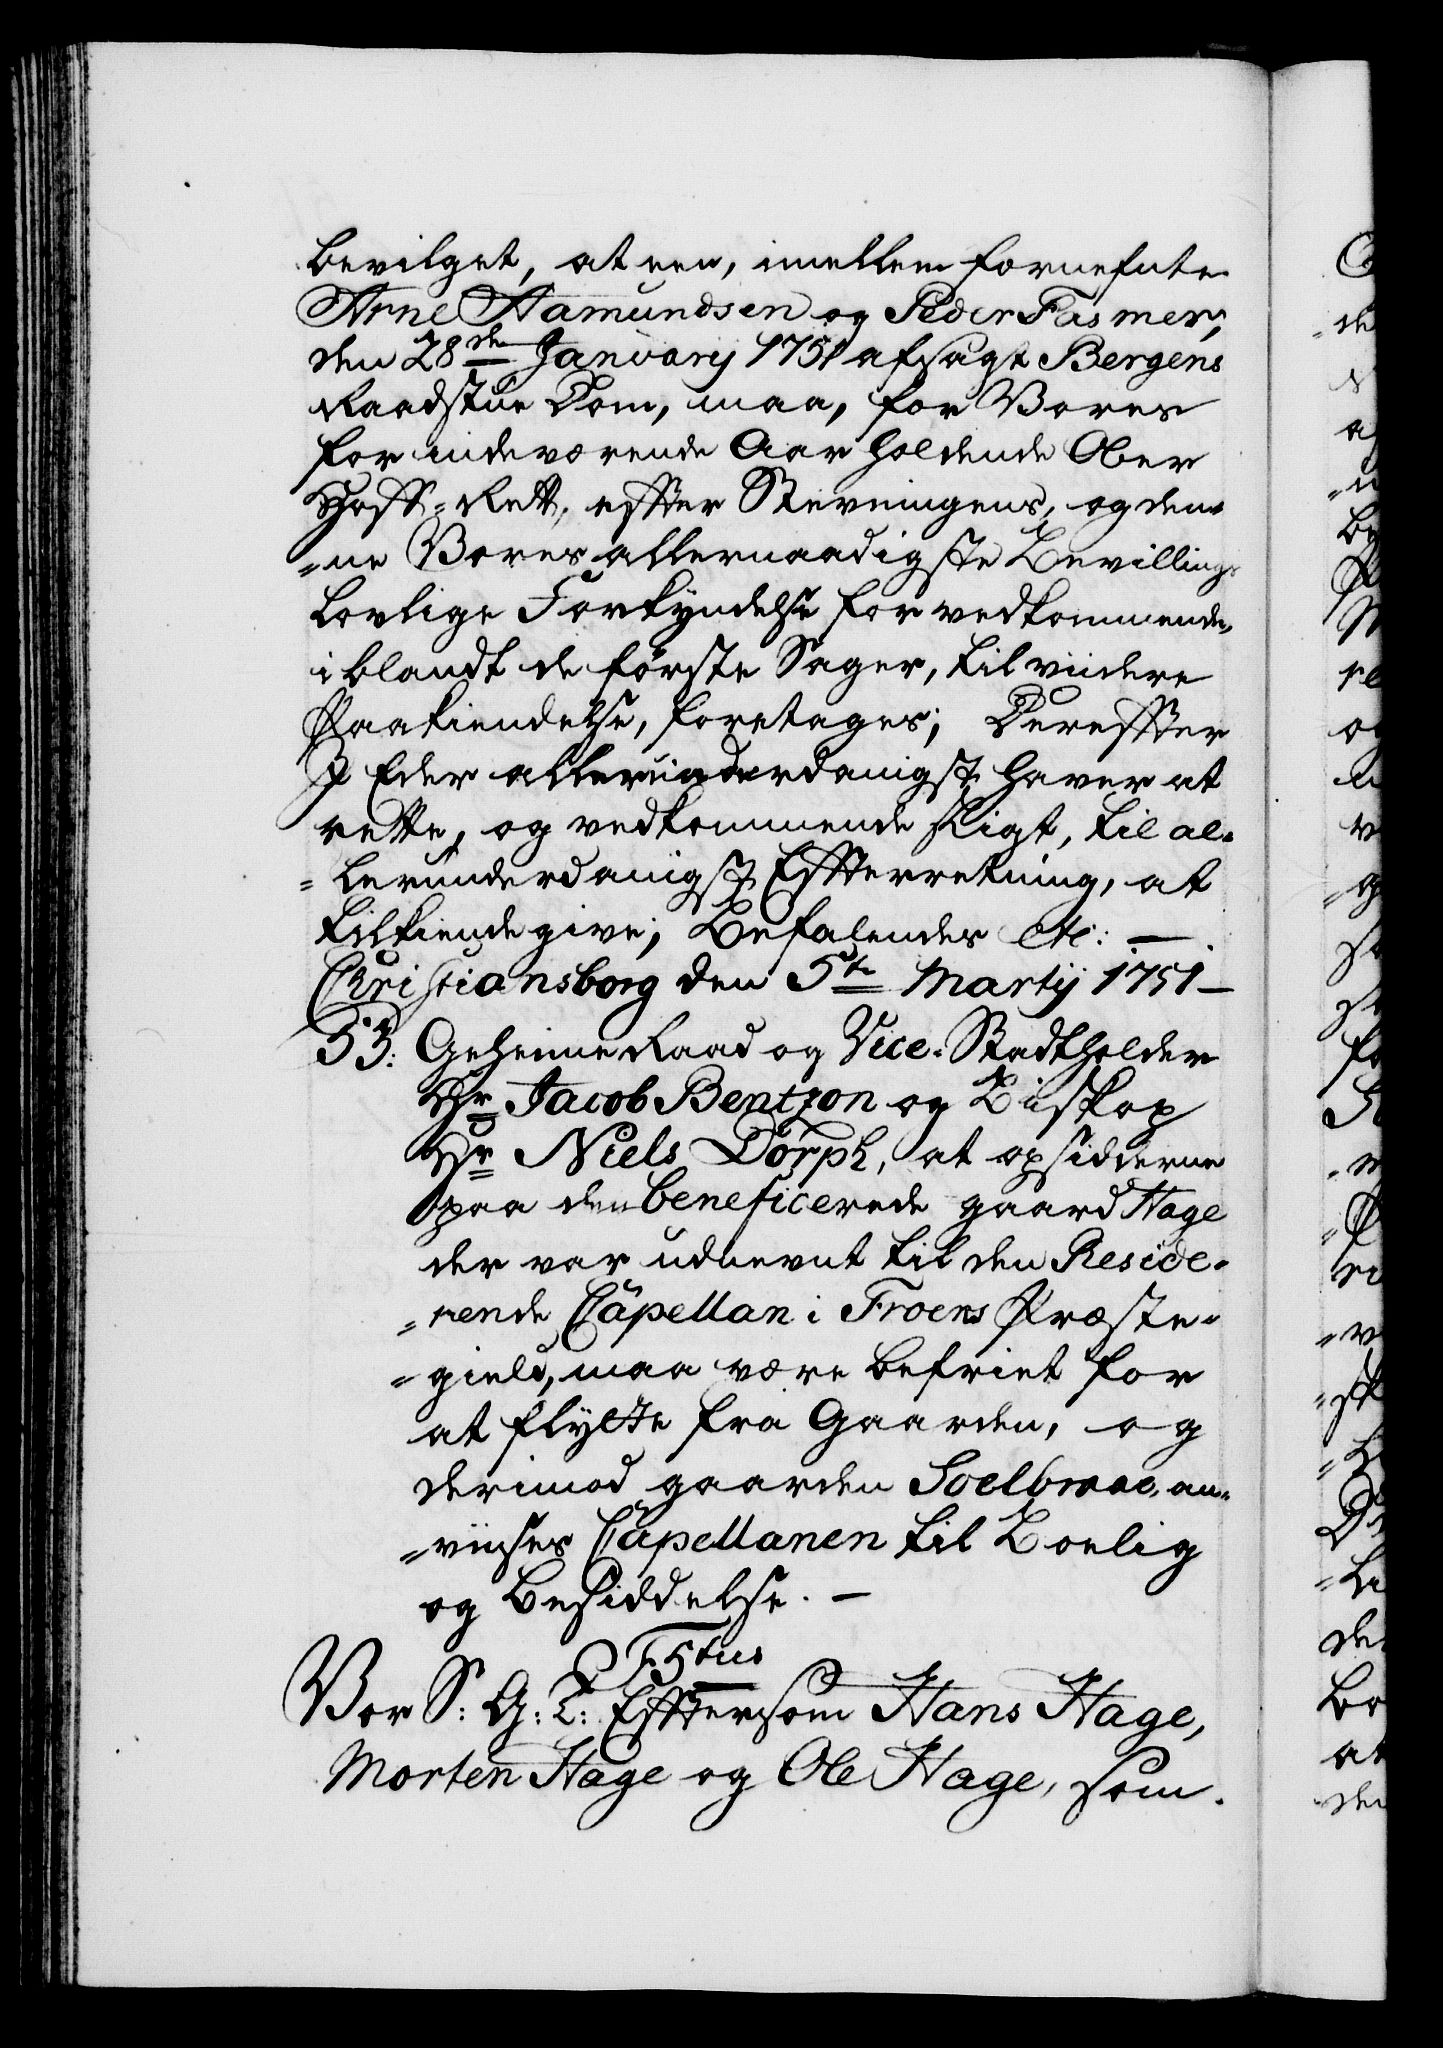 bevilget, at een, imellem fornefnte
Arne Aamundsen og Peder Fasmer,
den 28de Januarij 1751 afsagt Bergens
Raadstue Dom, maa, for Vores
for indeværende Aar holdende Ober
Hoff-Rett, effter Stevningens, og den-
-ne Vores allernaadigste Bevillings
lovlige Forkyndelse for vedkommende,
iblandt de förste Sager, til viidere
Paakiendelse, foretages; Dereffter
I Eder allerunderdanigst haver at
rette, og vedkommende sligt, til al-
-lerunderdanigst Effterretning, at
tilkiendegive; Befalendes etc: —
Christiansborg den 5te Martij 1751 —
53. Geheime Raad og Vice-Stadtholder
Hr Jacob Bentzon og Biskop
Hr Niels Dorph, at opsidderne
paa den beneficerede gaard Hage
der var udnevnt til den Reside-
-rende Capellan i Froens Præste-
-gield, maa være befriet for
at flytte fra Gaarden, og
derimod gaarden Soelbraae, an-
-viises Capellanen til Boelig
og Besiddelse. —
F5tus
Vor S: G: T: Efftersom Hans Hage,
Morten Hage og Ole Hage, som